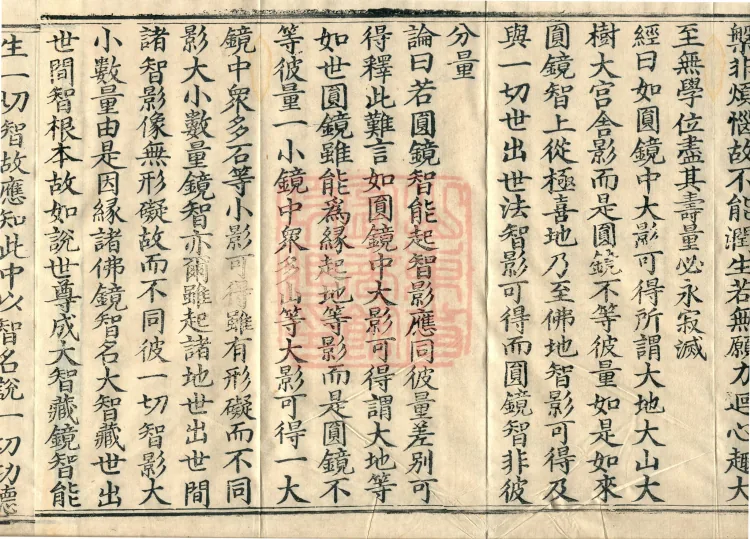 槃非煩惱故不能潤生若無願力迴心趣大
至無學位盡其壽量必永寂滅
經曰如圓鏡中大影可得所謂大地大山大
樹大宮舍影而是圓鏡不等彼量如是如來
圓鏡智上從極喜地乃至佛地智影可得及
與一切世出世法智影可得而圓鏡智非彼
分量
論曰若圓鏡智能起智影應同彼量差別可
得釋此難言如圓鏡中大影可得謂大地等
如世圓鏡雖能爲緣起地等影而是圓鏡不
等彼量一小鏡中衆多山等大影可得一大
鏡中衆多石等小影可得雖有形礙而不同
影大小數量鏡智亦爾雖起諸地世出世間
諸智影像無形礙故而不同彼一切智影大
小數量由是因緣諸佛鏡智名大智藏世出
世間智根本故如說世尊成大智藏鏡智能
生一切智故應知此中以智名說一切功德